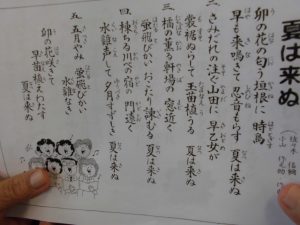 夏は来ぬ
佐々木 信綱 作詞
小山 作之助 作曲
卯の花の匂う垣根に 時鳥
早も来鳴きて 忍音もらす 夏は来ぬ
二、さみだれの注ぐ山田に 早乙女が
裳裾ぬらして 玉苗植うる 夏は来ぬ
三、橘の薫る軒場の 窓近く
蛍飛びかい おこたり諫むる 夏は来ぬ
四、楝ちる 川辺の宿の 門遠く
水鶏声して 夕月すずしき 夏は来ぬ
五、五月やみ 蛍飛びかい 水鶏なき
卯の花咲きて
早苗植えわたす
夏は来ぬ